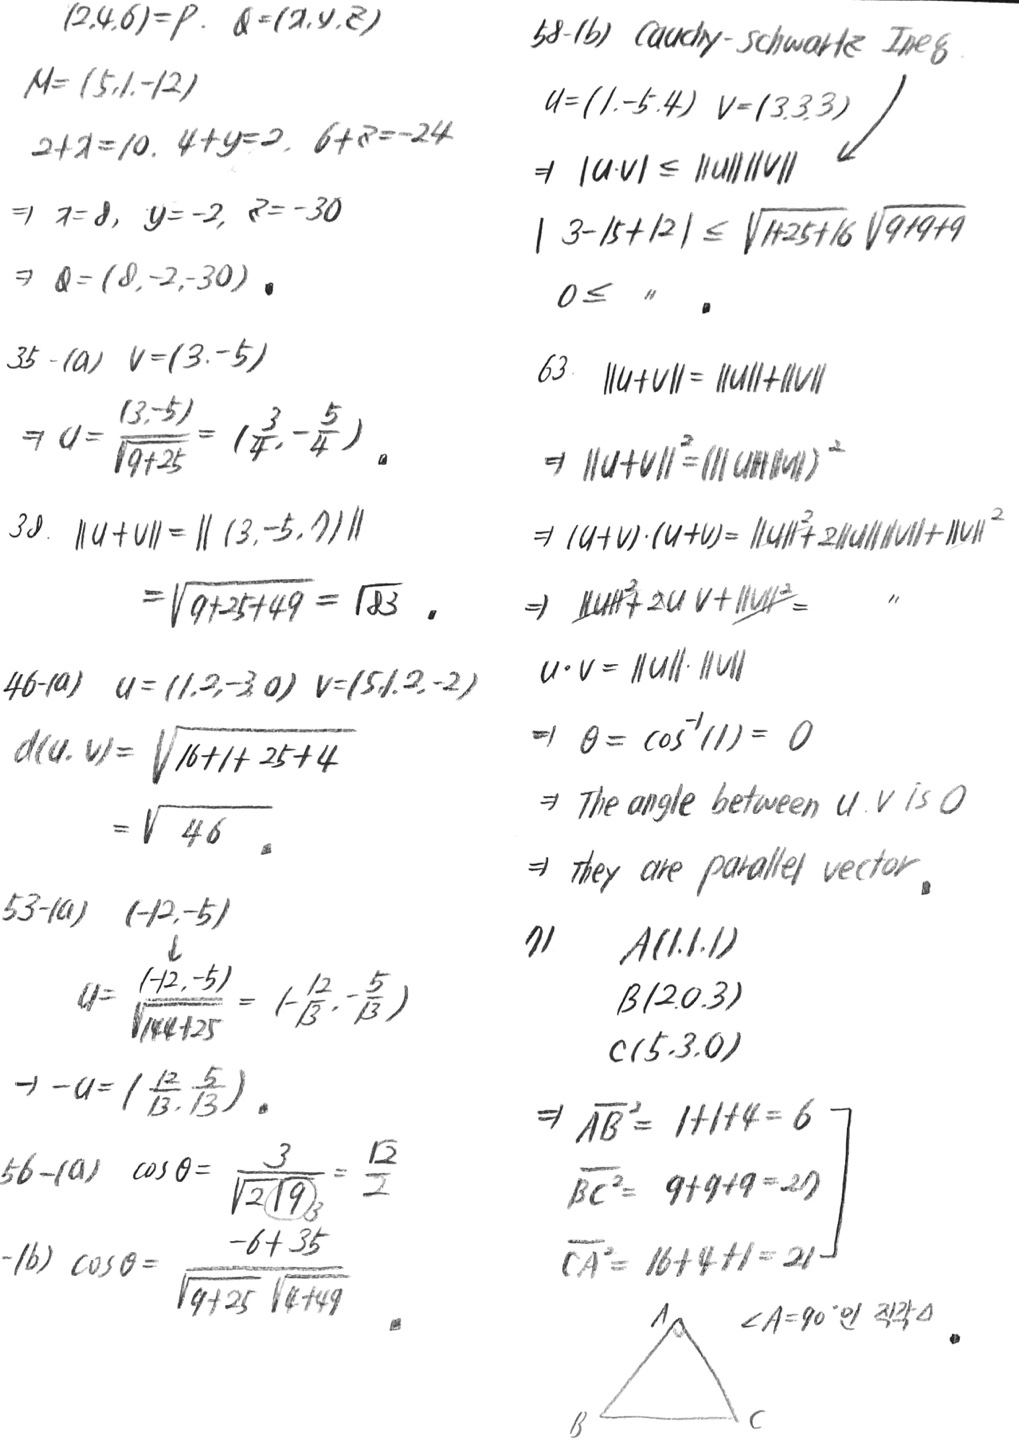 (2,4,6)=P. Q=(x,y,z)
M=(5,1,-12)
2+x=10, 4+y=2, 6+z=-24
⇒ x=8, y=-2, z=-30
⇒ Q=(8,-2,-30).
35-(a) v=(3,-5)
⇒ u= (3,-5)/√(9+25) = (3/4, -5/4).
38. ||u+v||=||(3,-5,7)||
=√(9+25+49) = √83.
46-(a) u=(1,2,-3,0) v=(5,1,2,-2)
d(u,v)= √(16+1+25+4)
= √46.
53-(a) (-12,-5)
↓
u= (-12,-5)/√(144+25) = (-12/13, -5/13)
→ -u=(12/13, 5/13).
56-(a) cosθ= 3/(√2 √9) = √2/2
3
-(b) cosθ= (-6+35)/(√(9+25) √(4+49)).
58-(b) Cauchy-Schwartz Ineq.
u=(1,-5,4) v=(3,3,3)
⇒ |u·v| ≤ ||u|| ||v||
|3-15+12| ≤ √(1+25+16) √(9+9+9)
0 ≤ 〃.
63. ||u+v||=||u||+||v||
⇒ ||u+v||²=(||u||+||v||)²
⇒ (u+v)·(u+v)=||u||²+2||u|| ||v||+||v||²
⇒ ||u||²+2u v+||v||²= 〃
u·v=||u||·||v||
⇒ θ = cos⁻¹(1) = 0
⇒ The angle between u.v is 0
⇒ They are parallel vector.
71 A(1.1.1)
B(2.0.3)
C(5.3.0)
⇒ AB²= 1+1+4=6
BC²= 9+9+9=27
CA²= 16+4+1=21
A ∠A=90°인 직각△.
B C